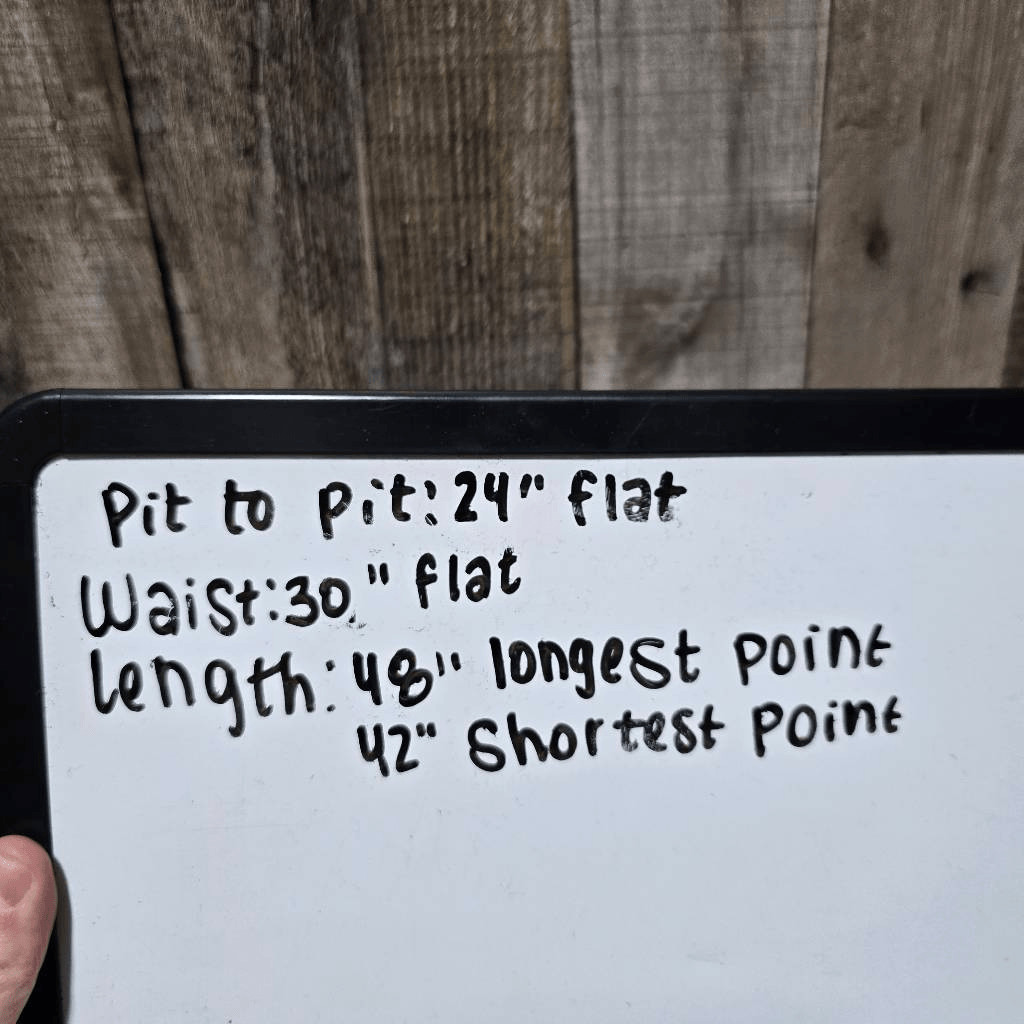 Pit to Pit: 24" flat
Waist: 30" flat
Length: 48" longest point
42" Shortest point